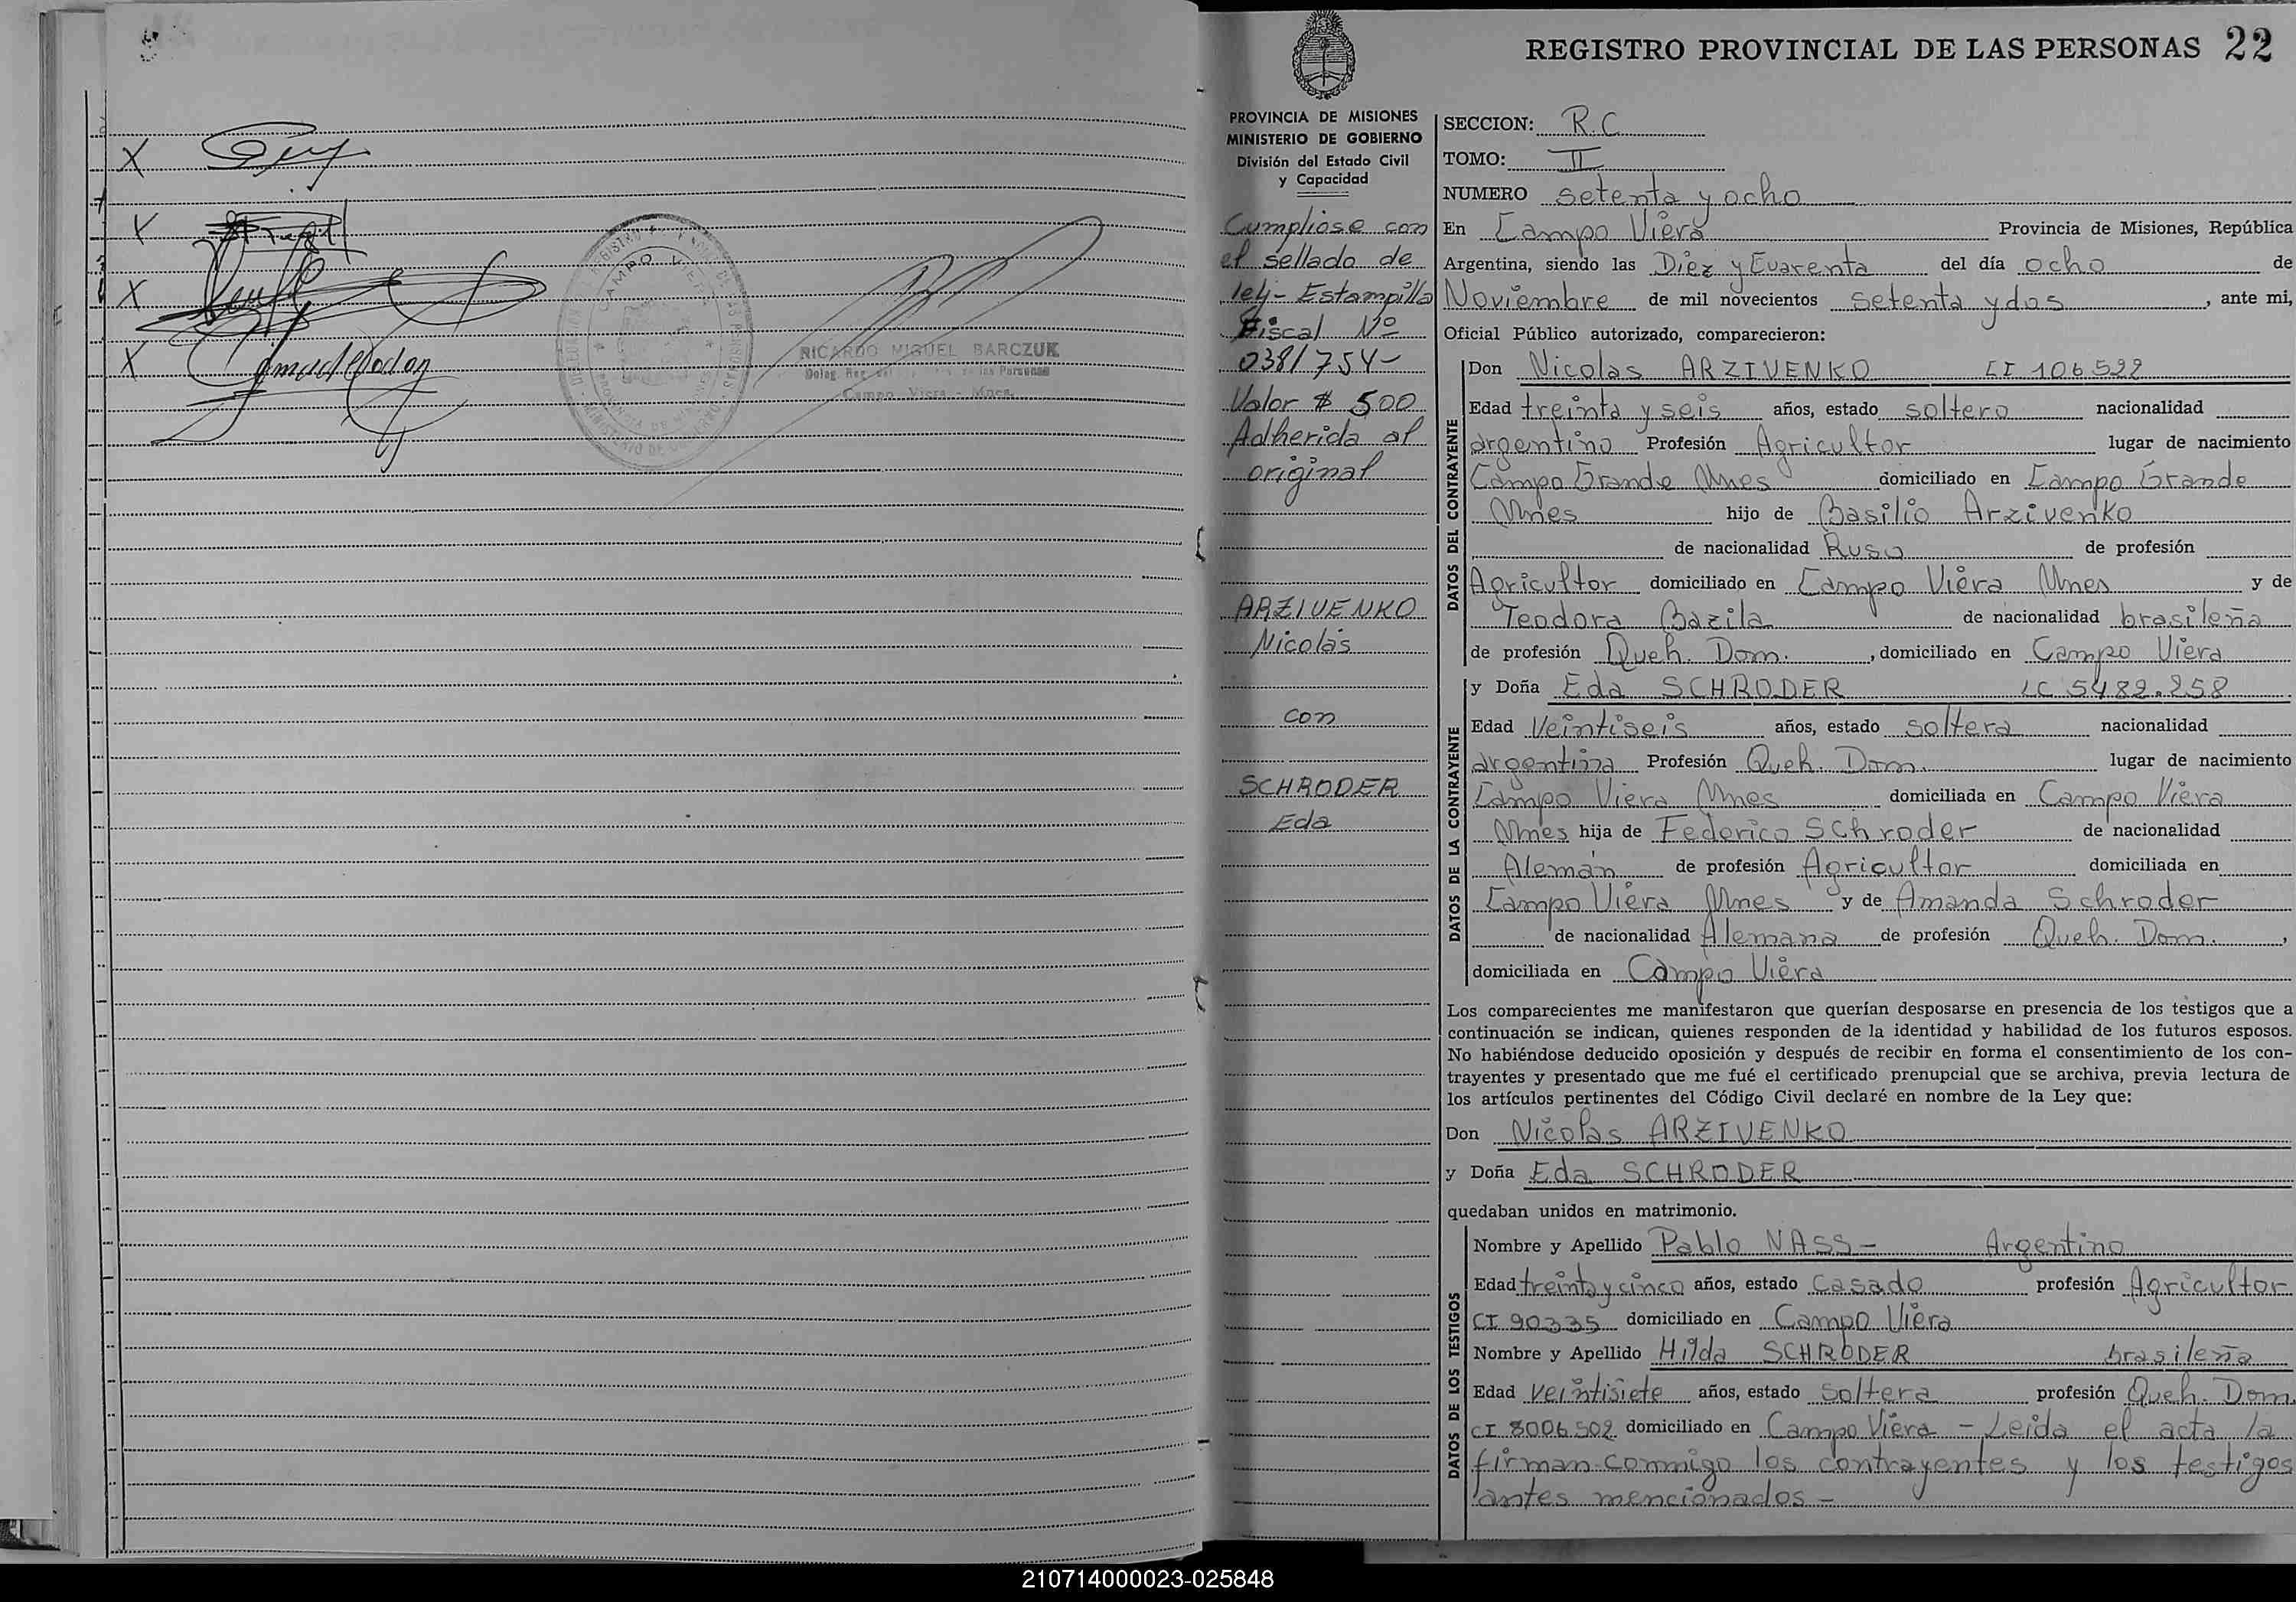 X
X
X
X
CAMPO VIERA
RICARDO MIGUEL BARCZUK
Campo Viera - Mnes.
REGISTRO PROVINCIAL DE LAS PERSONAS 22
PROVINCIA DE MISIONES
MINISTERIO DE GOBIERNO
División del Estado Civil
y Capacidad
Cumpliose con
el sellado de
ley - Estampilla
Fiscal Nº
0381754-
Valor $ 500
Adherida al
original
ARZIVENKO
Nicolás
con
SCHRODER
Eda
SECCION: R.C
TOMO: II
NUMERO setenta y ocho
En Campo Viera Provincia de Misiones, República
Argentina, siendo las Diez y Cuarenta del día ocho de
Noviembre de mil novecientos setenta y dos, ante mi,
Oficial Público autorizado, comparecieron:
DATOS DEL CONTRAYENTE
Don Nicolas ARZIVENKO CI 106522
Edad treinta y seis años, estado soltero nacionalidad
argentino Profesión Agricultor lugar de nacimiento
Campo Grande Mnes domiciliado en Campo Grande
Mnes hijo de Basilio Arzivenko
de nacionalidad Ruso de profesión
Agricultor domiciliado en Campo Viera Mnes y de
Teodora Bazila de nacionalidad brasileña
de profesión Queh. Dom., domiciliado en Campo Viera
DATOS DE LA CONTRAYENTE
y Doña Eda SCHRODER LC 5482.258
Edad Veintiseis años, estado soltera nacionalidad
argentina Profesión Queh. Dom. lugar de nacimiento
Campo Viera Mnes domiciliada en Campo Viera
Mnes hija de Federico Schroder de nacionalidad
Alemán de profesión Agricultor domiciliada en
Campo Viera Mnes y de Amanda Schroder
de nacionalidad Alemana de profesión Queh. Dom.,
domiciliada en Campo Viera
Los comparecientes me manifestaron que querían desposarse en presencia de los testigos que a
continuación se indican, quienes responden de la identidad y habilidad de los futuros esposos.
No habiéndose deducido oposición y después de recibir en forma el consentimiento de los con-
trayentes y presentado que me fué el certificado prenupcial que se archiva, previa lectura de
los artículos pertinentes del Código Civil declaré en nombre de la Ley que:
Don Nicolas ARZIVENKO
y Doña Eda SCHRODER
quedaban unidos en matrimonio.
DATOS DE LOS TESTIGOS
Nombre y Apellido Pablo NASS - Argentino
Edad treinta y cinco años, estado casado profesión Agricultor
CI 90335 domiciliado en Campo Viera
Nombre y Apellido Hilda SCHRODER brasileña
Edad veintisiete años, estado soltera profesión Queh. Dom.
CI 8006502 domiciliado en Campo Viera - Leida el acta la
firman conmigo los contrayentes y los testigos
antes mencionados -
210714000023-025848